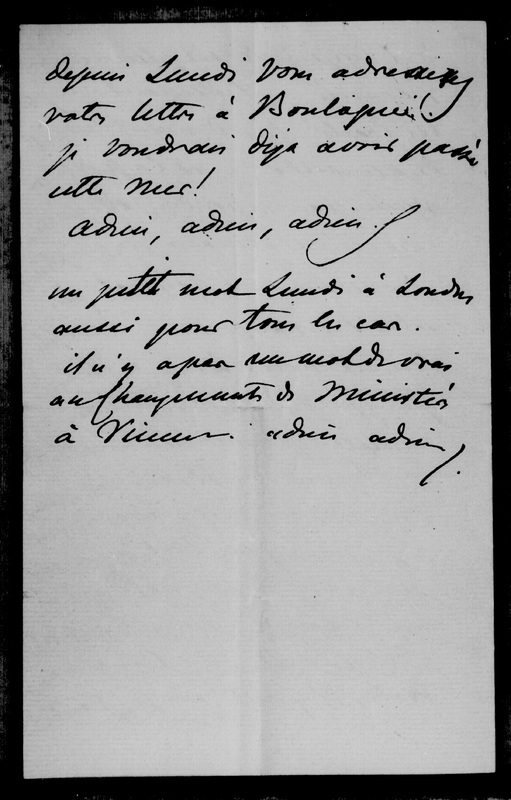 depuis Lundi vous adresserez
votre lettre à Boulogne!
je voudrais déja avoir passé
cette mer!
adieu, adieu, adieu.
un petit mot Lundi à Londres
aussi pour tous les cas.
il n'y a pas un mot de vrai
au Changements de Ministère
à Vienne. adieu adieu.